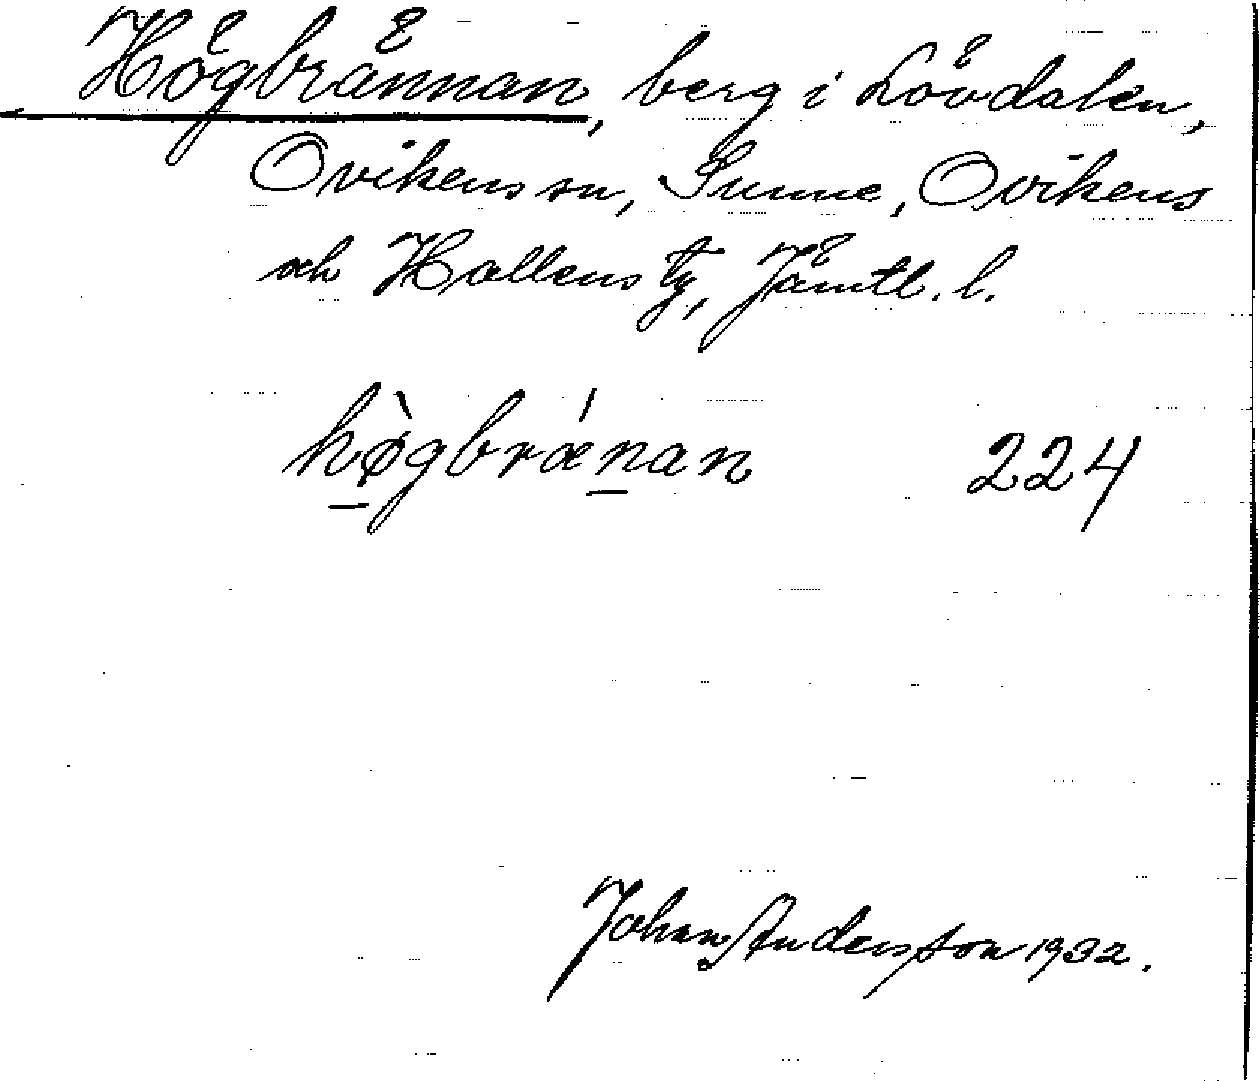 Högbrännan, berg i Lövdalen,
Ovikens sn, Sunne, Ovikens
och Hallens tg, Jämtl. l.
hø̀gbrǽnan 224
Johan Andersson 1932.